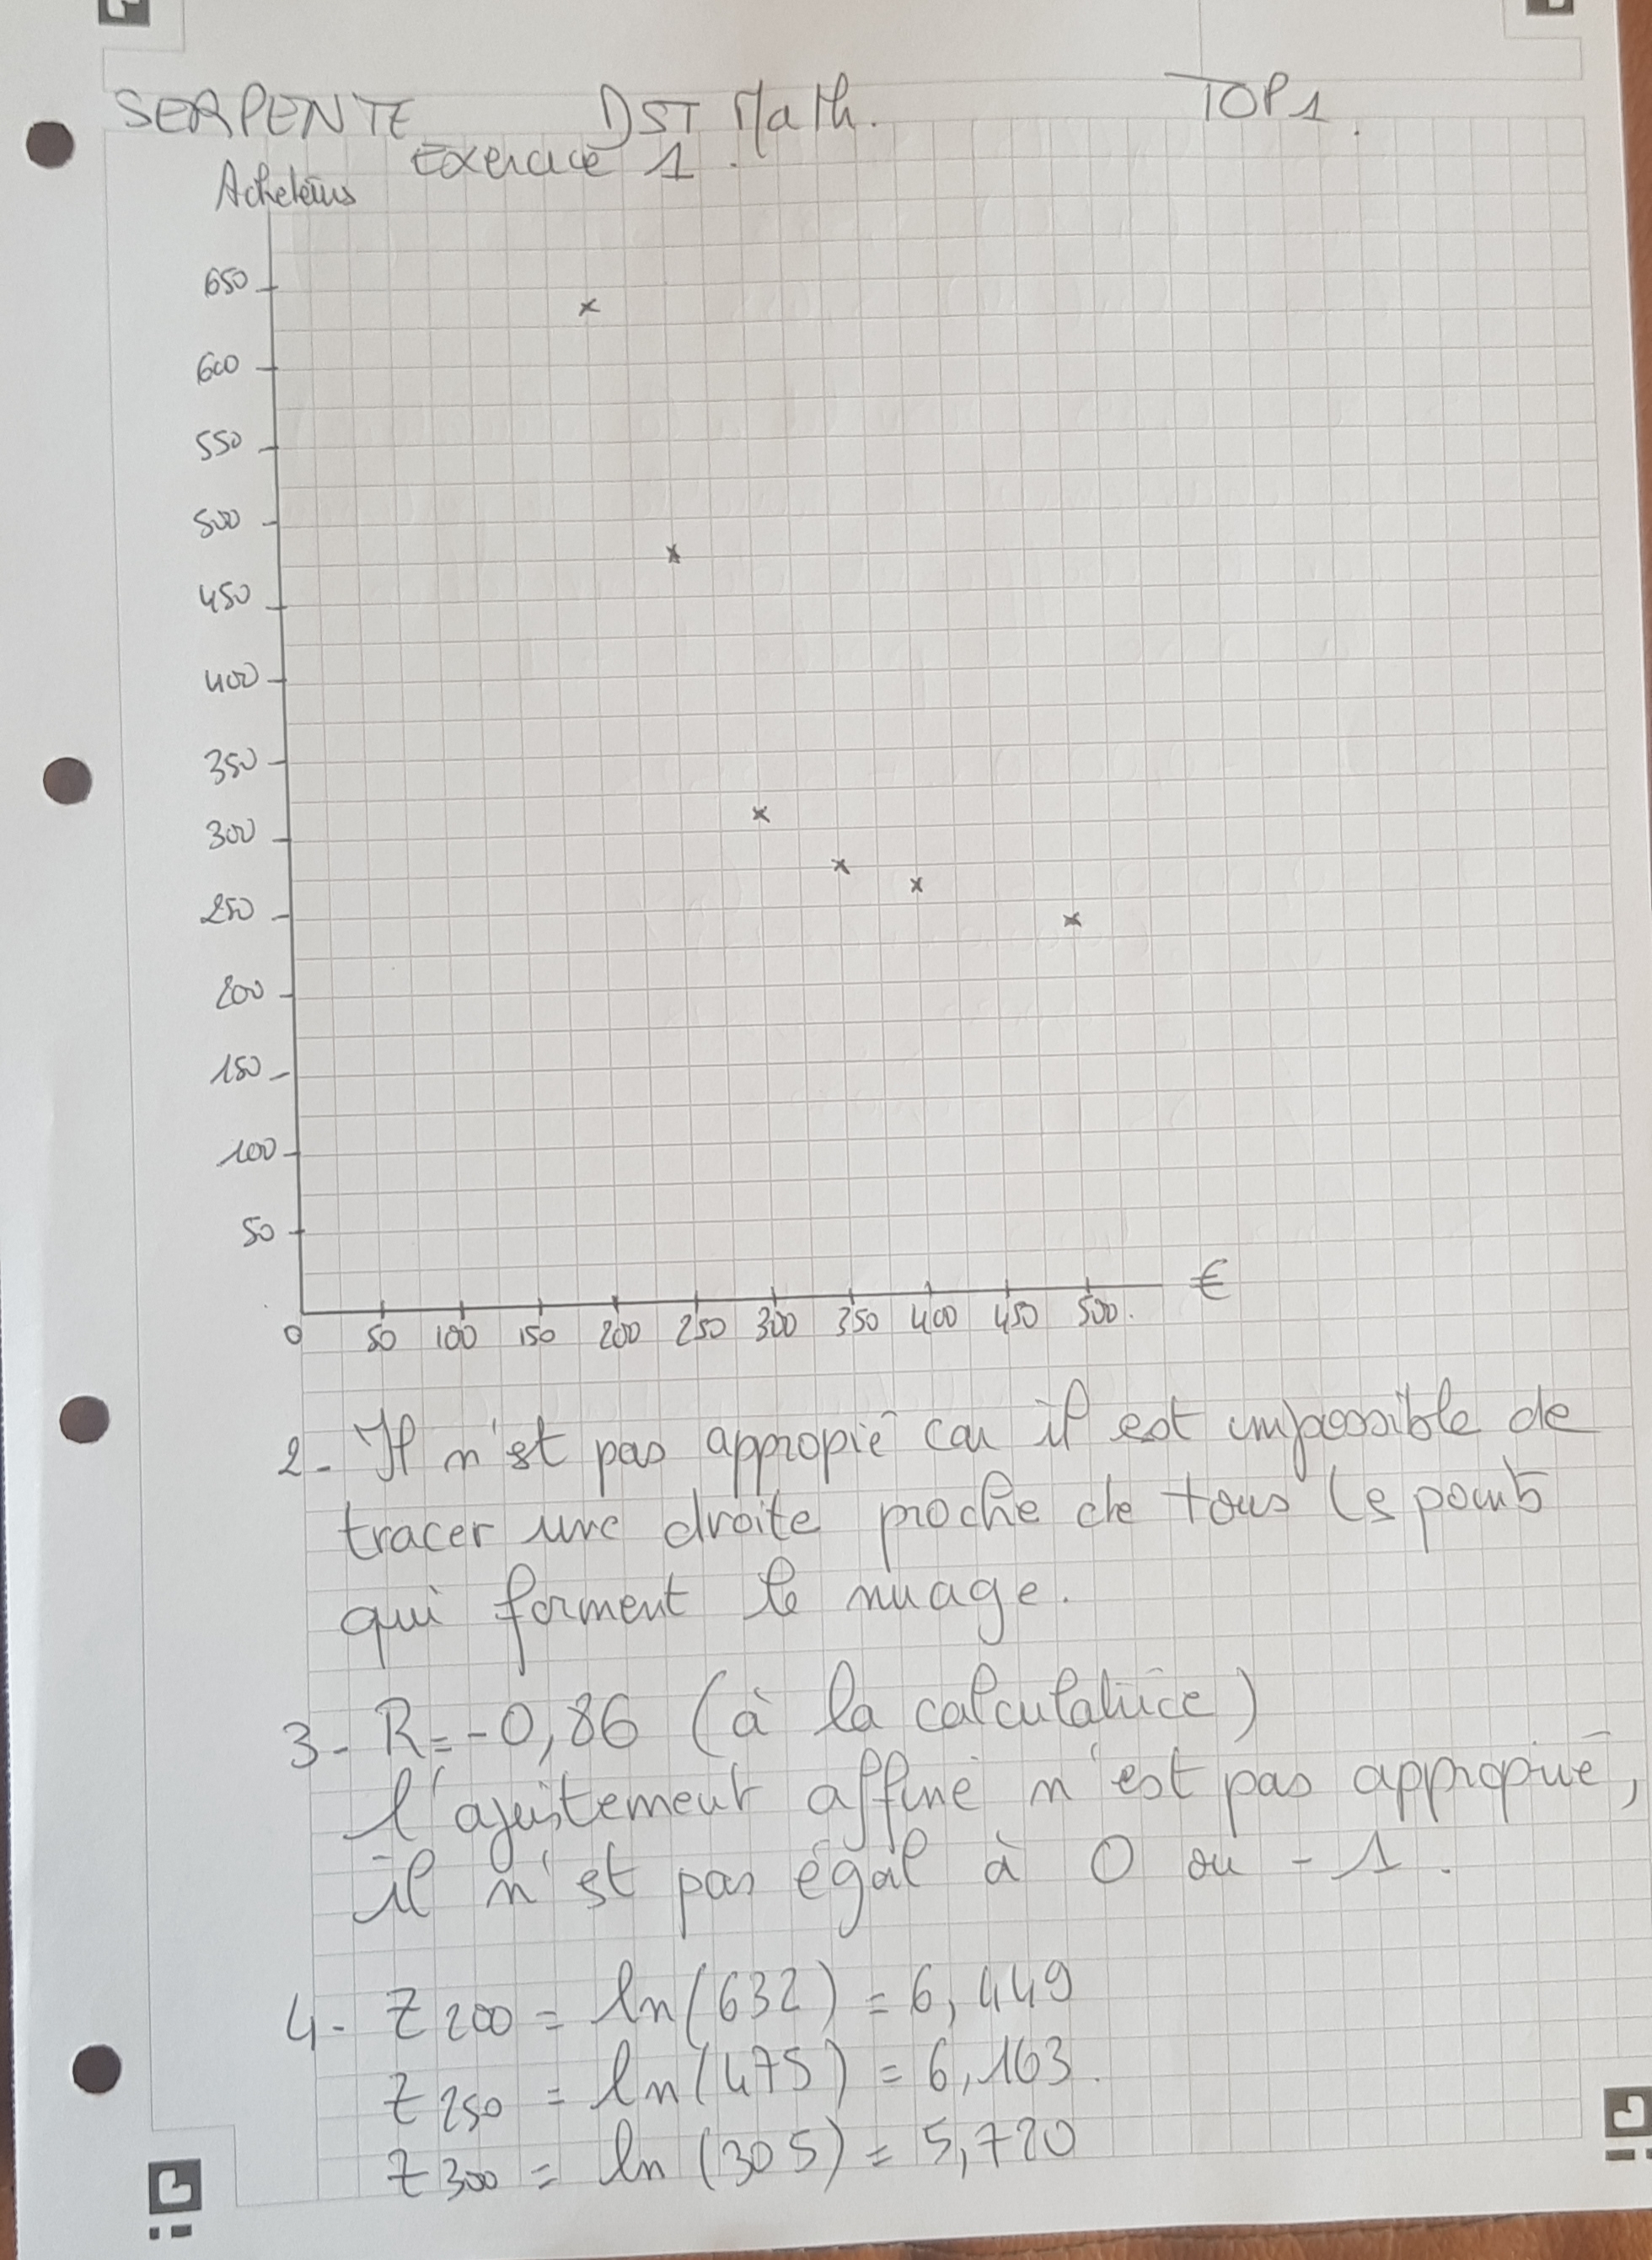 SERPENTE DST Math. TOP1.
Exercice 1.
Acheteurs
650
600
550
500
450
400
350
300
250
200
150
100
50
0 50 100 150 200 250 300 350 400 450 500. €
2- Il n'est pas appropié car il est impossible de
tracer une droite proche de tous les points
qui forment le nuage.
3- R=-0,86 (à la calculatrice)
l'ajustement affine n'est pas approprié,
il n'est pas égal à 0 ou -1.
4- Z200 = ln(632) = 6,449
Z250 = ln(475) = 6,163.
Z300 = ln(305) = 5,720